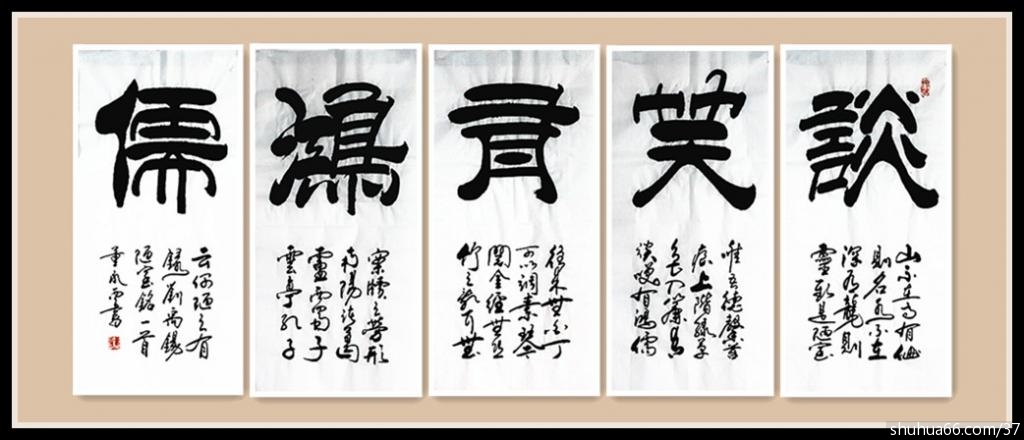 談
笑
有
鴻
儒
山不在高有仙
則名水不在
深有龍則
靈斯是陋室
唯吾德馨苔
痕上階綠草
色入簾青
談笑有鴻儒
往來無白丁
可以調素琴
閱金經無絲
竹之亂耳無
案牘之勞形
南陽諸葛
廬西蜀子
雲亭孔子
云何陋之有
錄劉禹錫
陋室銘一首
shuhua66.com/37